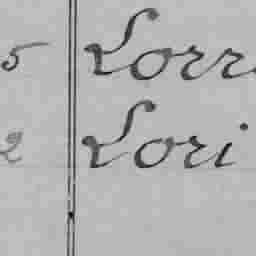 5 Lorr
2 Lori